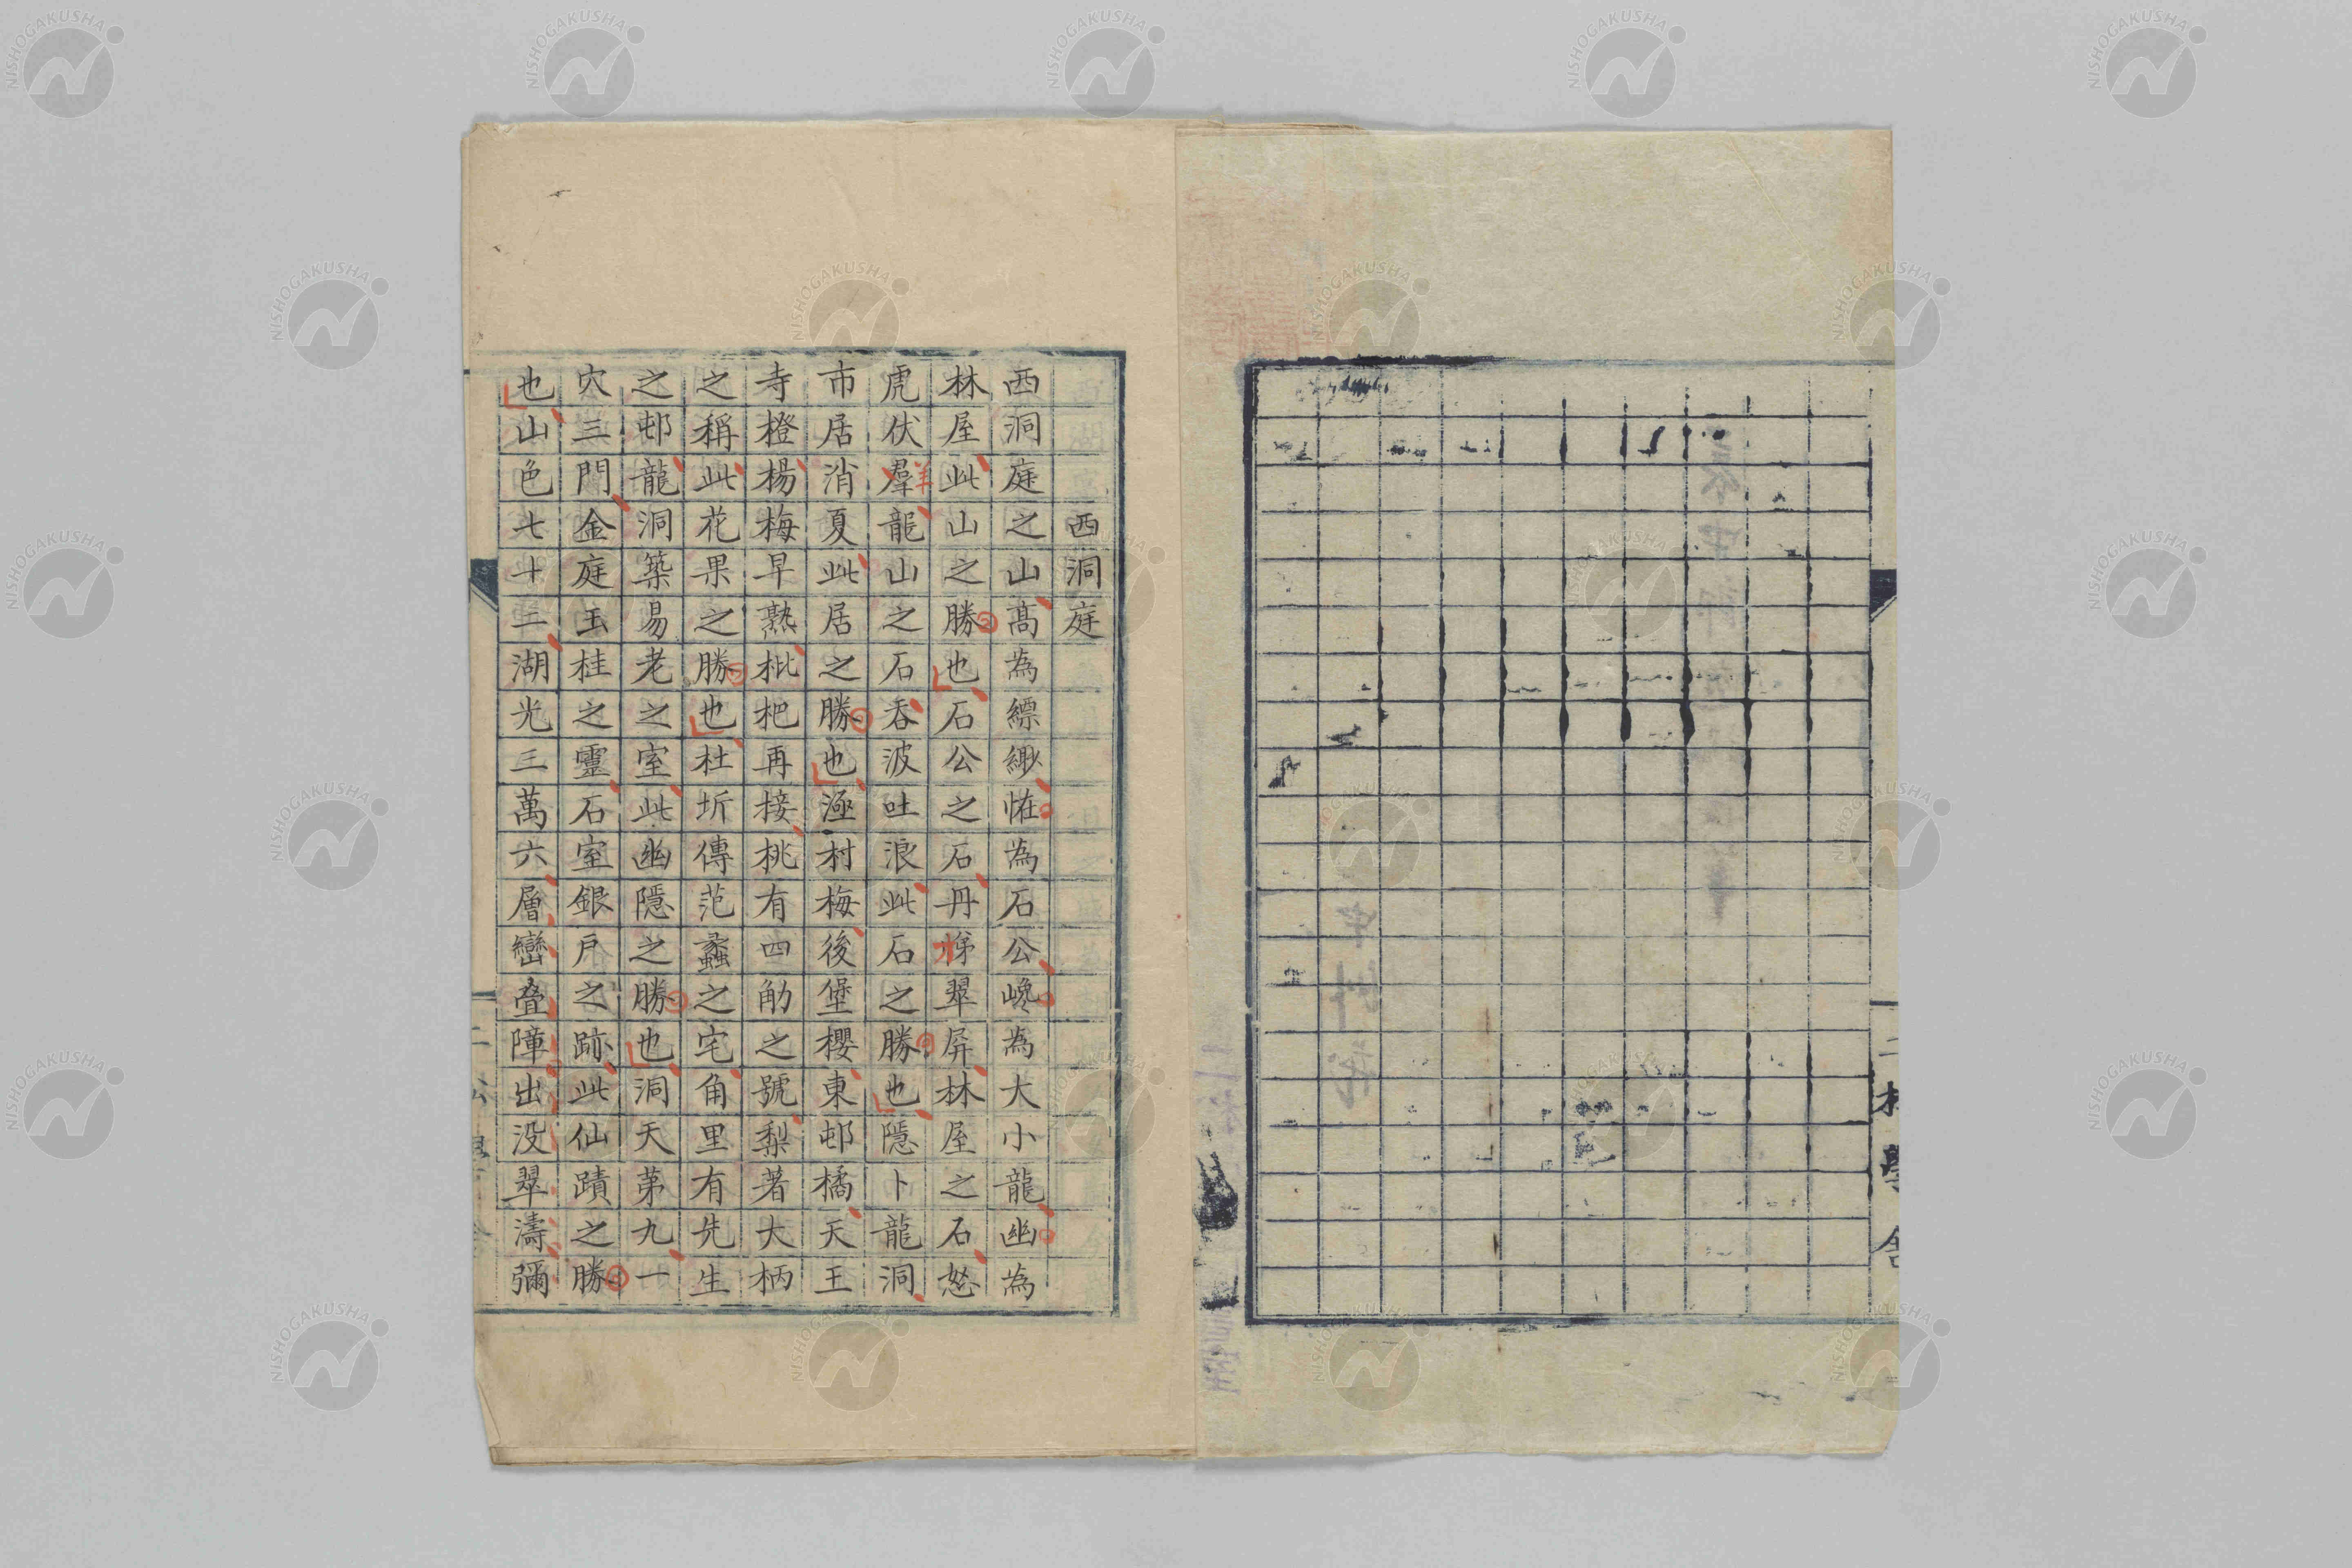 西洞庭
西洞庭之山高為縹緲恠為石公巉為大小龍幽為
林屋此山之勝也石公之石丹梯翠屏林屋之石怒
虎伏羣龍山之石吞波吐浪此石之勝也隱卜龍洞
市居消夏此居之勝也涵村梅後堡櫻東邨橘天王
寺橙楊梅早熟枇杷再接桃有四觔之號梨著大柄
之稱此花果之勝也杜圻傳范蠡之宅甪里有先生
之邨龍洞築易老之室此幽隱之勝也洞天第九一
穴三門金庭玉柱之靈石室銀戶之跡此仙蹟之勝
也山色七十二湖光三萬六層巒疊障出没翠濤彌
羊
二松學舍
NISHOGAKUSHA